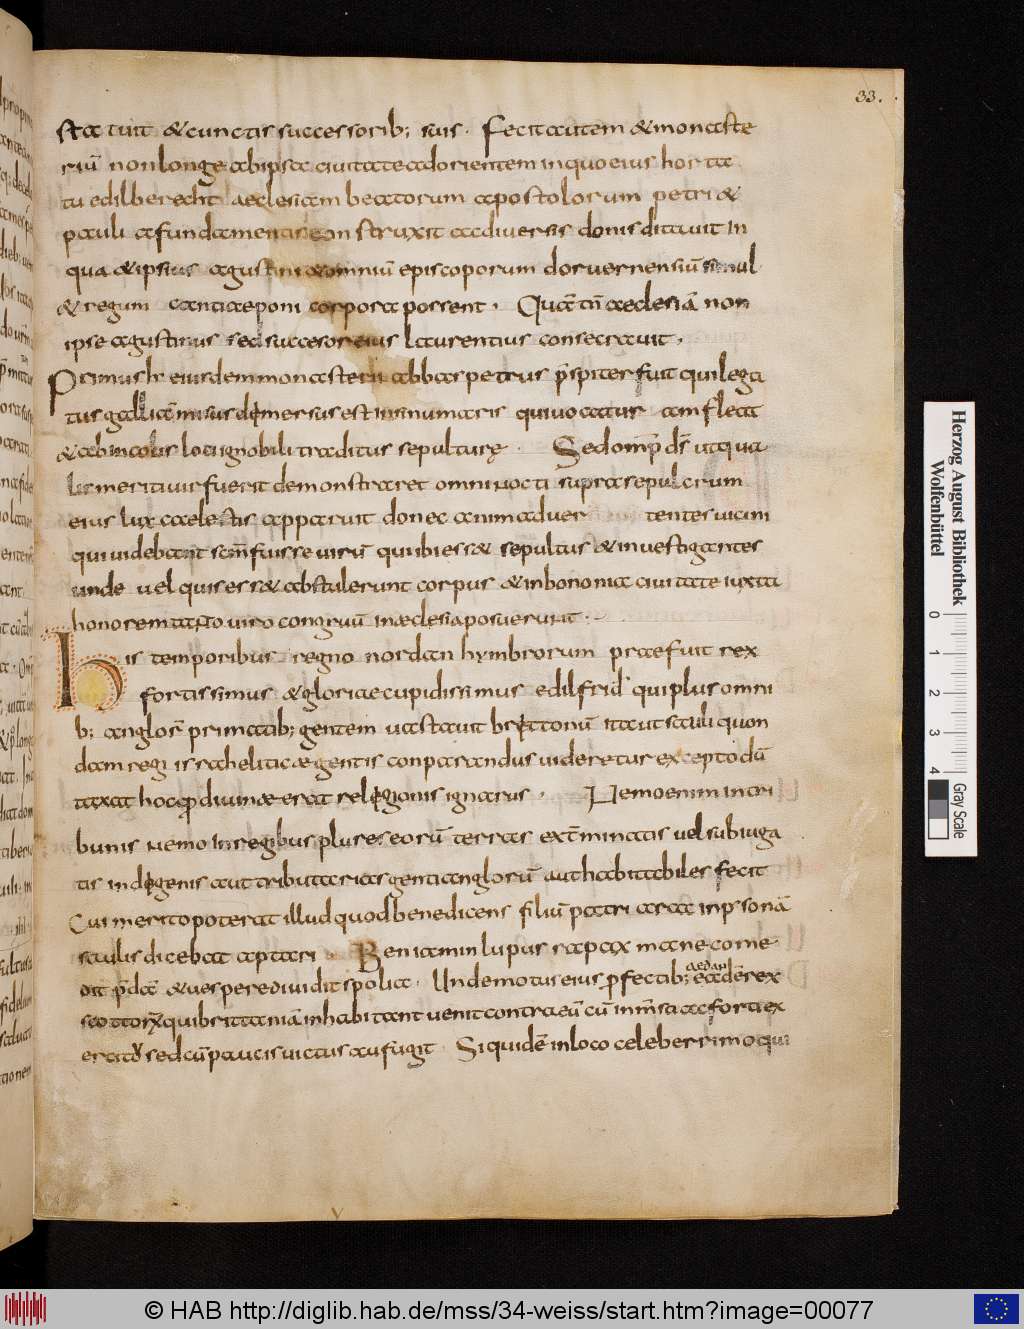 33.
sta tuit & cunctis successorib; suis. Fecit autem & monaste
riū non longe ab ipsa ciuitate ad orientem in quo eius horta
tu edilberecht aeclesiam beatorum apostolorum petri &
pauli a fundamentis con struxit ac diuersis donis ditauit in
qua & ipsius agustini & omniū episcoporum doruernensiū simul
& regum cantiae poni corpora possent. Quā tn̄ aeclesiā non
ipse agustinus sed succesor eius laurentius consecrauit.
Primus eiusdem monasterii abbas petrus p̄sbiter fuit qui lega
tus galliā misus demersus est in sinu maris qui uocatur amfleat
& ab incolis loci ignobili traditus sepulturę. Sed omp̄ ds̄ ut qua
lis meriti uir fuerit demonstraret omni nocti supra sepulcrum
eius lux caelestis apparuit donec animaduer tentes uicini
qui uidebant scm̄ fuisse uirū qui ibi ess& sepultus & inuestigantes
unde uel quis ess& abstulerunt corpus & in bononia ciuitate iuxta
honorem tanto uiro congruū in aeclesia posuerunt.
His temporibus regno nordan hymbrorum praefuit rex
fortissimus & gloriae cupidissimus edilfrid qui plus omni
b; anglor̄ primatib; gentem uastauit brettonū ita ut sauli quon
dam regi israheliticae gentis conparandus uideretur excepto dū
taxat hoc quod diuinae erat religionis ignarus. Nemo enim in tri
bunis nemo in regibus plures eorū terras ext̄minatis uel subiuga
tis indegenis aut tributarias genti anglorū aut habitabiles fecit
Cui merito poterat illud quod benedicens filiū patri arcae in psonā
saulis dicebat aptari. Beniamin lupus rapax mane come
dit p̄dā & uespere diuidit spolia. Unde motus eius pfectib; aedan rex
scottorū qui brittaniā inhabitant uenit contra eū cū inm̄sa ac forti ex
ercitu sed cū paucis uictus aufugit. Siquidē in loco celeberrimo qui
Herzog August Bibliothek
Wolfenbüttel
0 1 2 3 4
Gray Scale
© HAB http://diglib.hab.de/mss/34-weiss/start.htm?image=00077